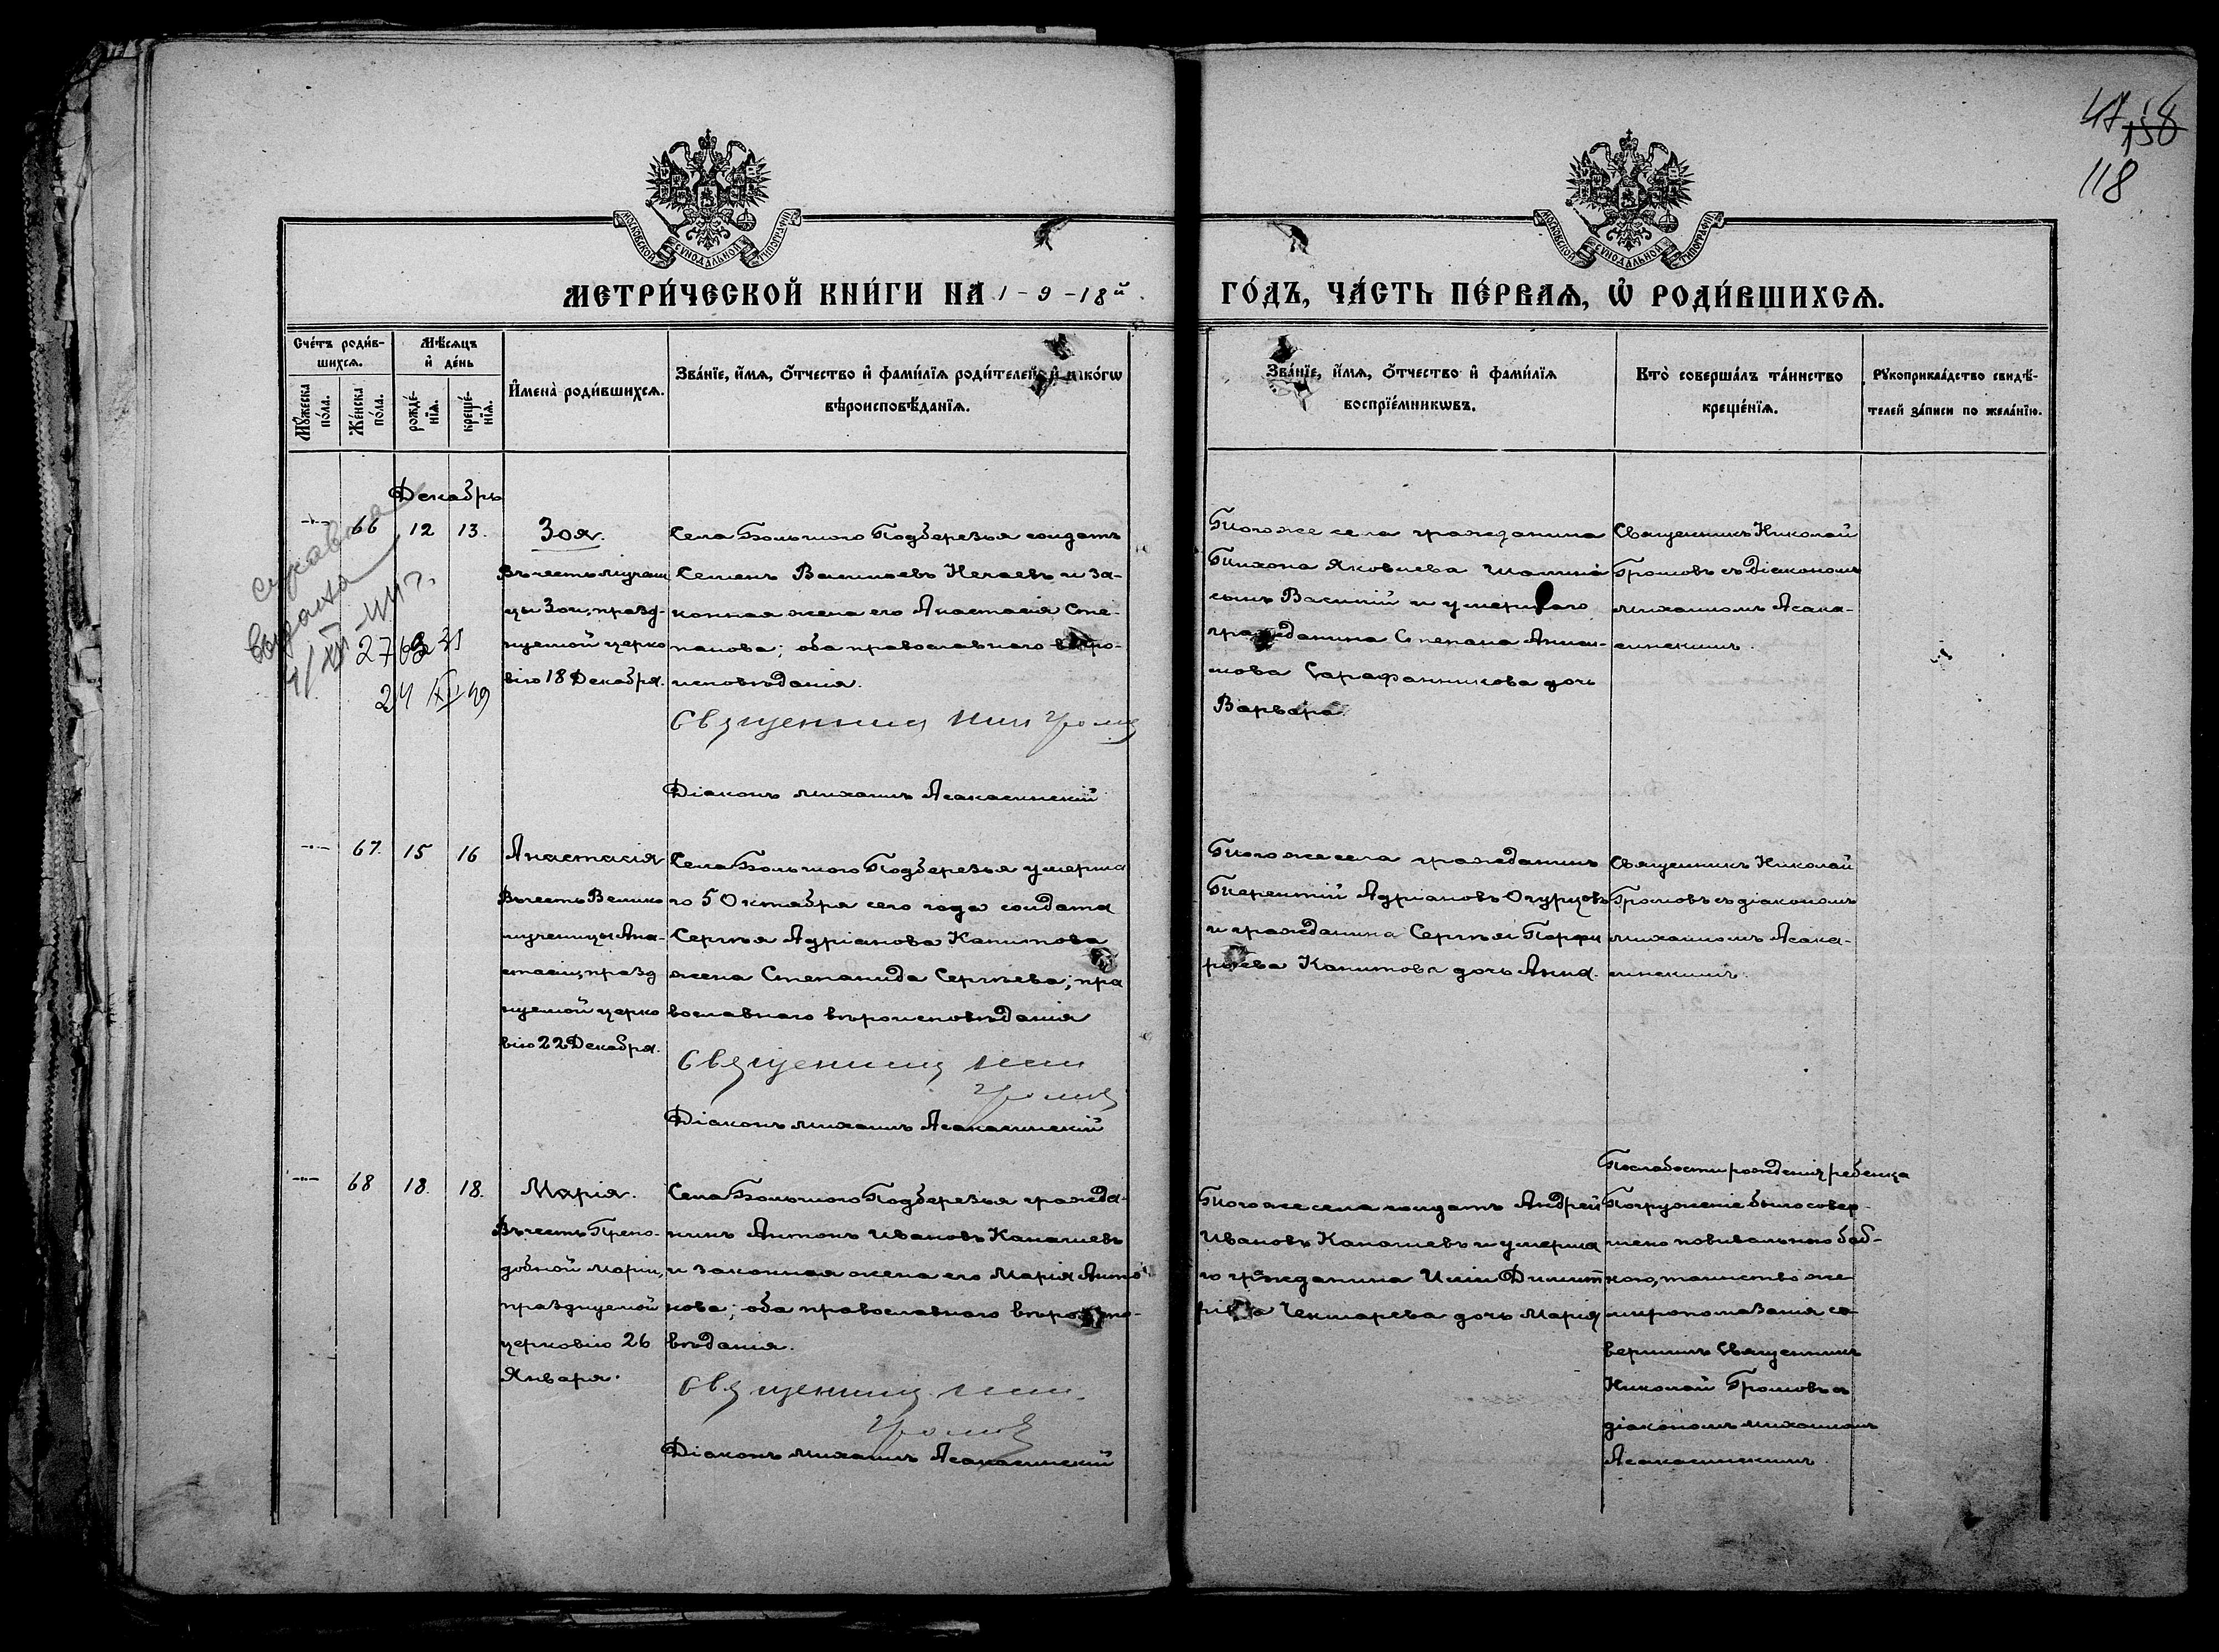 47 158
118
МОСКОВСКОЙ СѴНОДАЛЬНОЙ ТИПОГРАФІИ
МОСКОВСКОЙ СѴНОДАЛЬНОЙ ТИПОГРАФІИ
МЕТРИ́ЧЕСКОЙ КНИ́ГИ НА 1-9-18й.
ГО́ДЪ, ЧА́СТЬ ПЕ́РВАѦ, Ѡ҆ РОДИ́ВШИХСѦ.
Сче́тъ роди́в-
шихсѧ.
Мꙋ́жеска
по́ла.
Же́нска
по́ла.
Мѣ́сѧцъ
и҆ де́нь
рожде́-
нїѧ.
креще́-
нїѧ.
И҆мена̀ роди́вшихсѧ.
Зва́нїе, и҆́мѧ, ѻ҆́тчество и҆ фами́лїѧ роди́телей, и҆ како́гѡ
вѣроисповѣ́данїѧ.
Зва́нїе, и҆́мѧ, ѻ҆́тчество и҆ фами́лїѧ
воспрїе́мникѡвъ.
Кто̀ соверша́лъ та́инство
креще́нїѧ.
Рꙋкоприкла́дство свидѣ́-
телей за́писи по жела́нїю.
Декабрь
справка
выдана
2763
24 XI 49
66
12
13.
Зоя.
Въ честь мучени
цы Зои, празд-
нуемой церко
вію 18 Декабря.
Села Большого Подберезья солдатъ
Семенъ Васильевъ Нечаевъ и за-
конная жена его Анастасія Сте-
панова; оба православнаго вѣро-
исповѣданія.
Священникъ Ник Громовъ
Діаконъ Михаилъ Асакасинскій
Того же села гражданина
Тихона Яковлева Шалина
сынъ Василій и умершаго
гражданина Степана Аник-
мова Сарафанникова дочь
Варвара.
Священникъ Николай
Громовъ съ Діакономъ
Михаиломъ Асака-
синскимъ.
67.
15
16
Анастасія
Въ честь Велико
мученицы Ана-
стасіи, празд
нуемой церко
вію 22 Декабря.
Села Большого Подберезья умерша
го 5 Октября сего года солдата
Сергѣя Адріанова Капитова
жена Степанида Сергѣева; пра
вославнаго вѣроисповѣданія
Священникъ Ник
Громовъ
Діаконъ Михаилъ Асакасинскій
Того же села гражданинъ
Терентій Адріановъ Огурцовъ
и гражданина Сергѣя Порфи
рьева Капитова дочь Анна.
Священникъ Николай
Громовъ съ діакономъ
Михаиломъ Асака-
синскимъ.
68
18.
18.
Марія.
Въ честь Препо-
добной Маріи,
празднуемой
церковію 26
Января.
Села Большого Подберезья гражда-
нинъ Антонъ Ивановъ Канашевъ
и законная жена его Марія Анто
нова; оба православнаго вѣроиспо-
вѣданія.
Священникъ Ник.
Громовъ
Діаконъ Михаилъ Асакасинскій
Того же села солдатъ Андрей
Ивановъ Канашевъ и умерша
го гражданина Иліи Димит
ріева Чекмарева дочь Марія
По слабости рожденія ребенка
Погруженіе было совер-
шено повивальною баб-
кою, таинство же
миропомазанія со
вершилъ Священникъ
Николай Громовъ съ
діакономъ Михаиломъ
Асакасинскимъ.